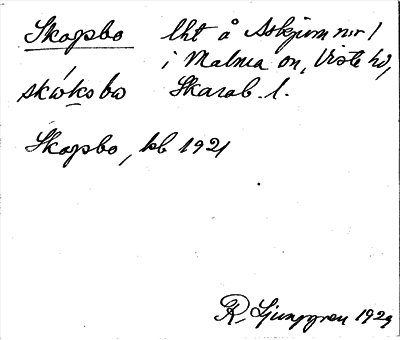 Skogsbo lht å Askjum nr 1
i Malma sn, Viste hd,
skoksbo Skarab. l.
Skogsbo, kb 1921
R. Ljunggren 1929